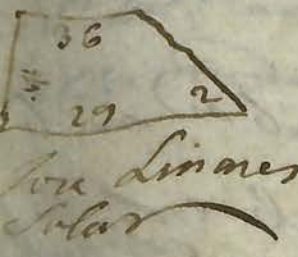 36
29 2
Linares
Solar